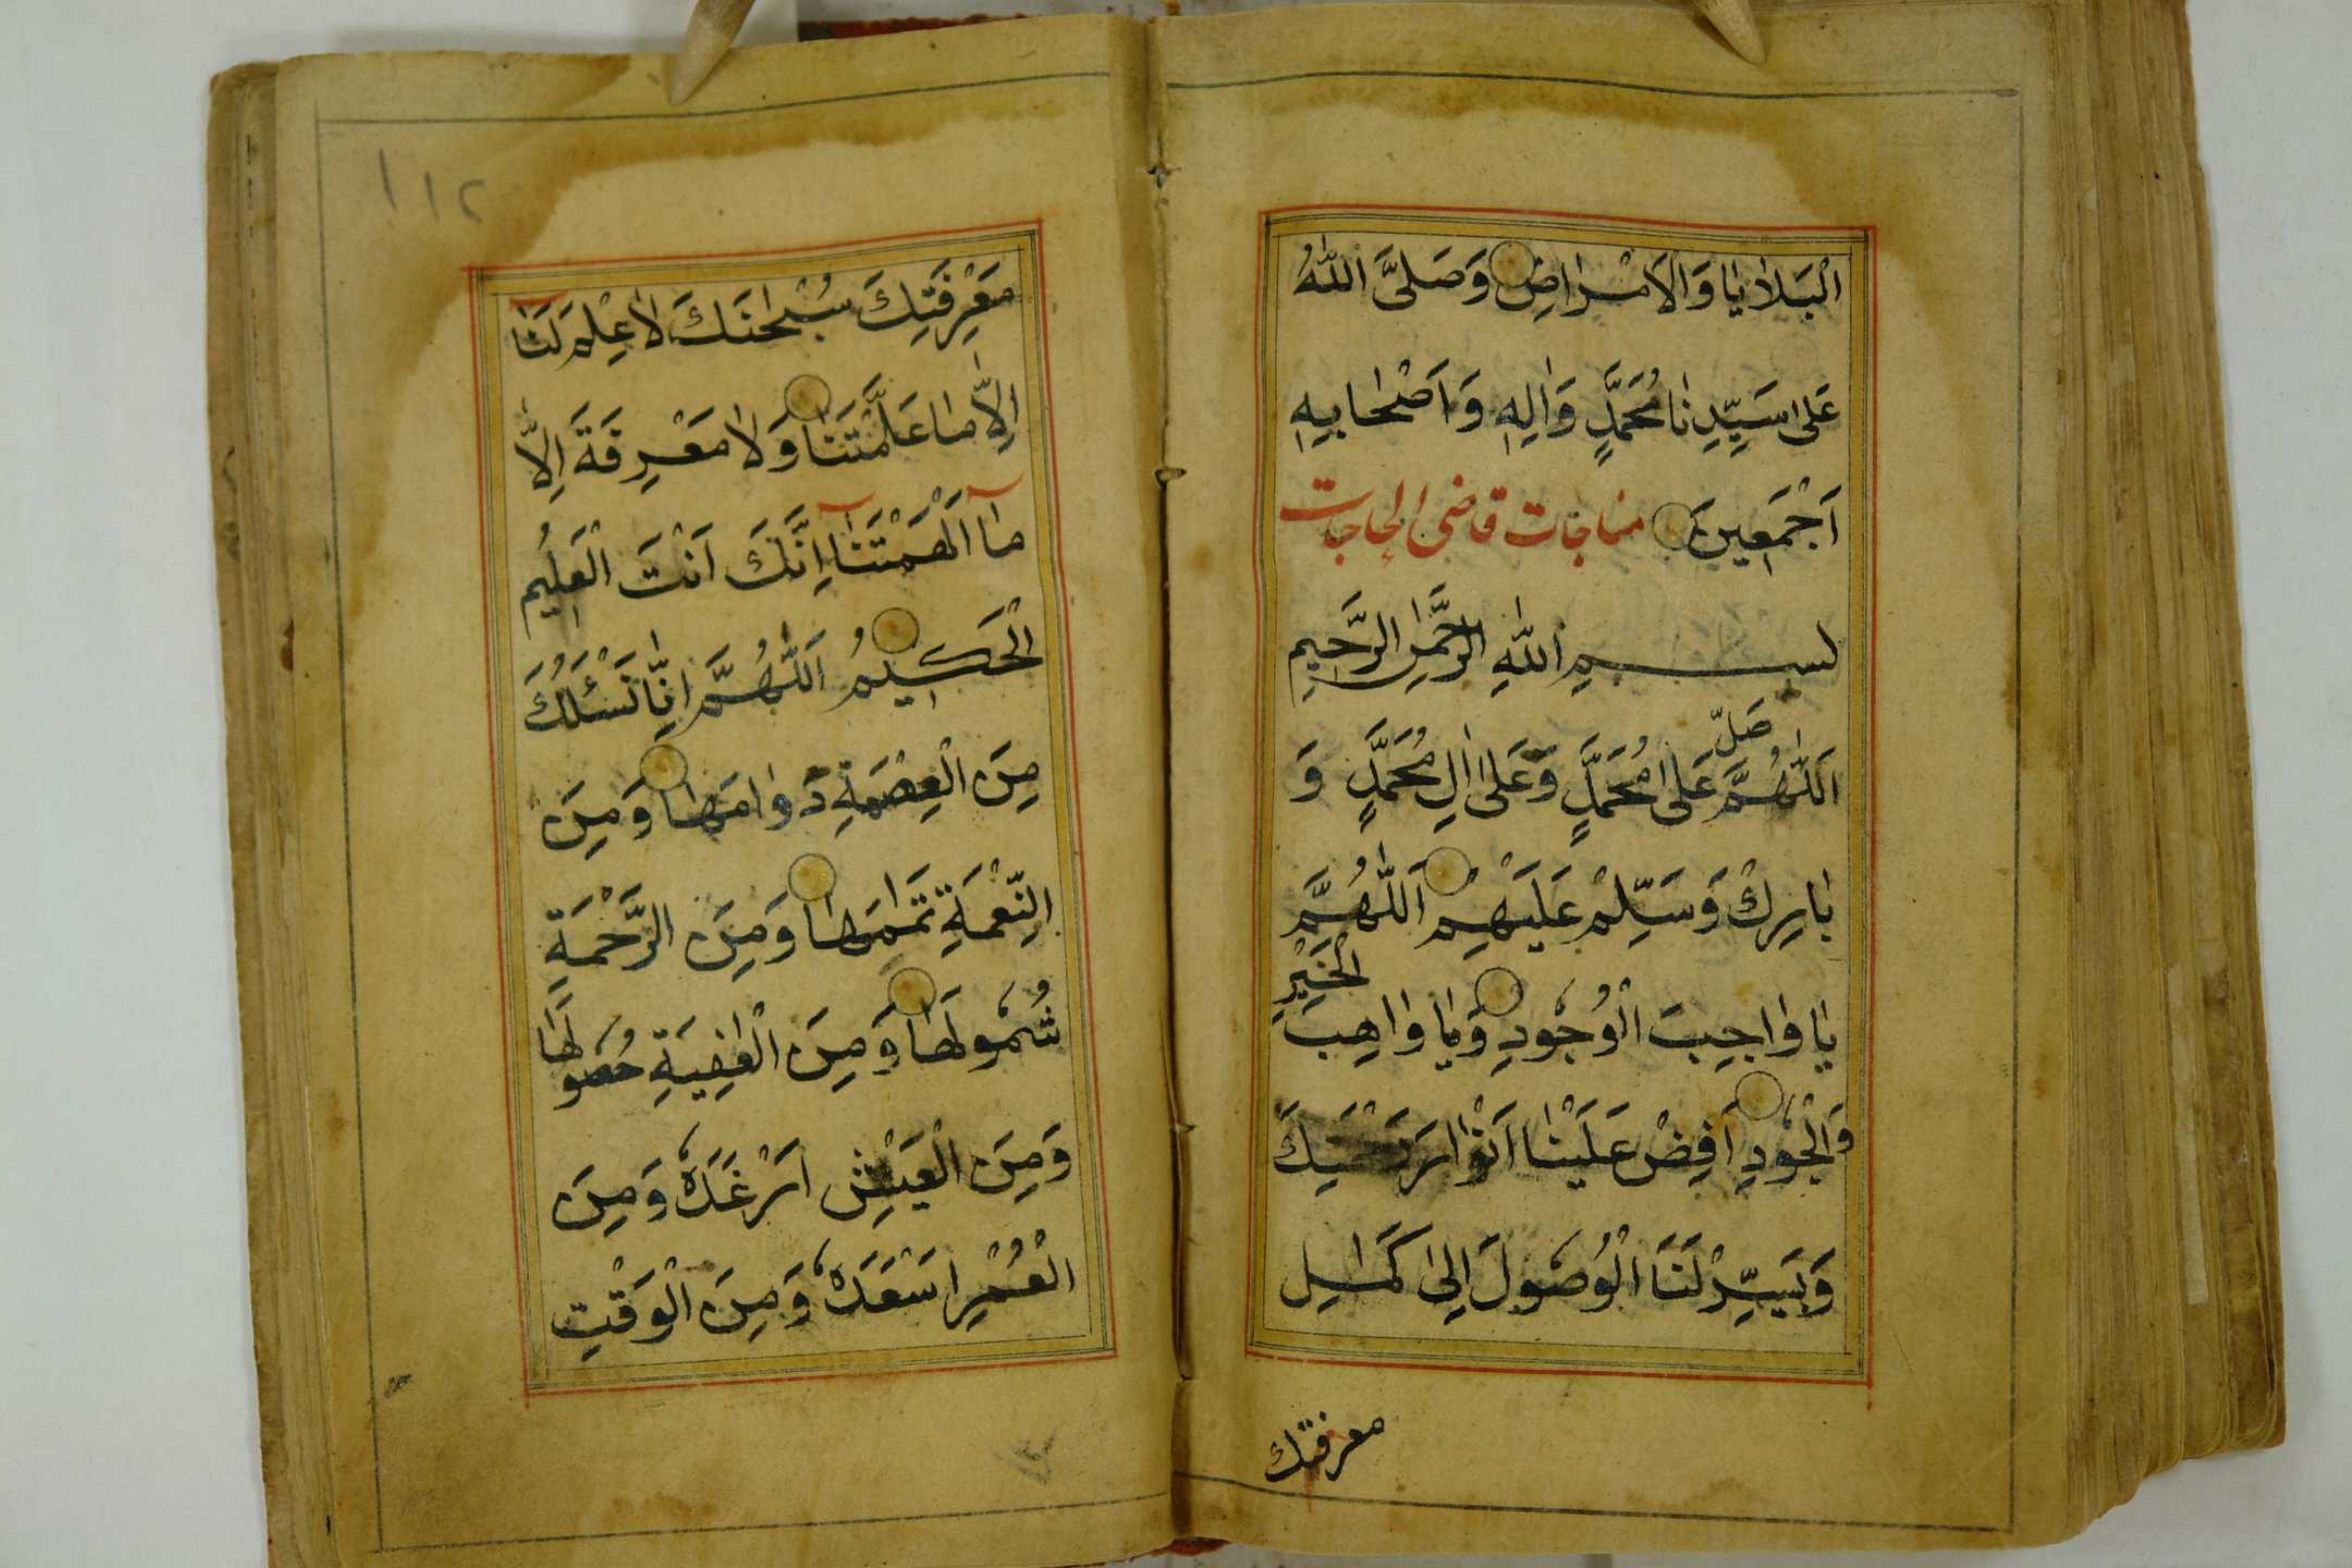 الْبَلَايَا وَالْاَمْرَاضِ وَصَلَّى اللّٰهُ
عَلٰى سَيِّدِنَا مُحَمَّدٍ وَاٰلِهٖ وَاَصْحَابِهٖ
اَجْمَعِينَ مناجات قاضى الحاجات
بِسْمِ اللّٰهِ الرَّحْمٰنِ الرَّحِيمِ
اَللّٰهُمَّ صَلِّ عَلٰى مُحَمَّدٍ وَعَلٰى اٰلِ مُحَمَّدٍ وَ
بَارِكْ وَسَلِّمْ عَلَيْهِمْ اَللّٰهُمَّ
يَا وَاجِبَ الْوُجُودِ وَيَا وَاهِبَ الْخَيْرِ
وَالْجُودِ اَفِضْ عَلَيْنَا اَنْوَارَ
وَيَسِّرْ لَنَا الْوُصُولَ اِلٰى كَمَالِ
معرفتك
١١٢
مَعْرِفَتِكَ سُبْحٰنَكَ لَا عِلْمَ لَنَا
اِلَّا مَا عَلَّمْتَنَا وَلَا مَعْرِفَةَ اِلَّا
مَآ اَلْهَمْتَنَآ اِنَّكَ اَنْتَ الْعَلِيمُ
الْحَكِيمُ اَللّٰهُمَّ اِنَّا نَسْئَلُكَ
مِنَ الْعِصْمَةِ دَوَامَهَا وَمِنَ
النِّعْمَةِ تَمَامَهَا وَمِنَ الرَّحْمَةِ
شُمُولَهَا وَمِنَ الْعٰفِيَةِ حُصُولَهَا
وَمِنَ الْعَيْشِ اَرْغَدَهُ وَمِنَ
الْعُمْرِ اَسْعَدَهُ وَمِنَ الْوَقْتِ